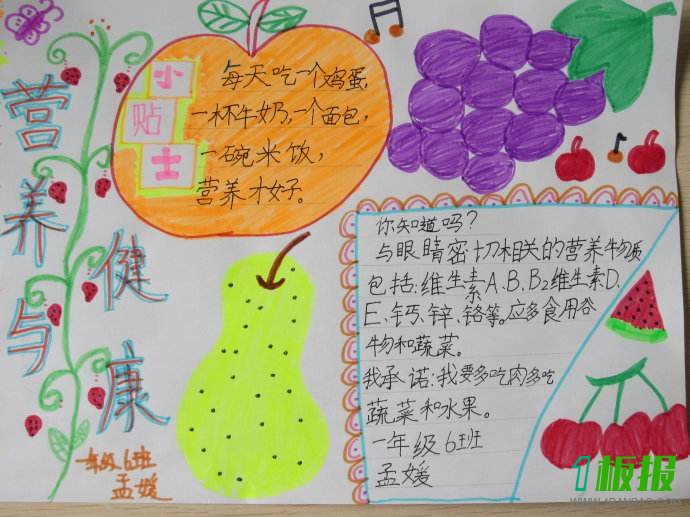 营养与
健康
小
贴
士
每天吃一个鸡蛋,
一杯牛奶,一个面包,
一碗米饭,
营养才好。
你知道吗?
与眼睛密切相关的营养物质
包括:维生素A、B、B2维生素D、
E、钙、锌、铬等。应多食用谷
物和蔬菜。
我承诺:我要多吃肉多吃
蔬菜和水果。
一年级6班
孟媛
一年级6班
孟媛
1板报
WWW.1BANBAO.COM